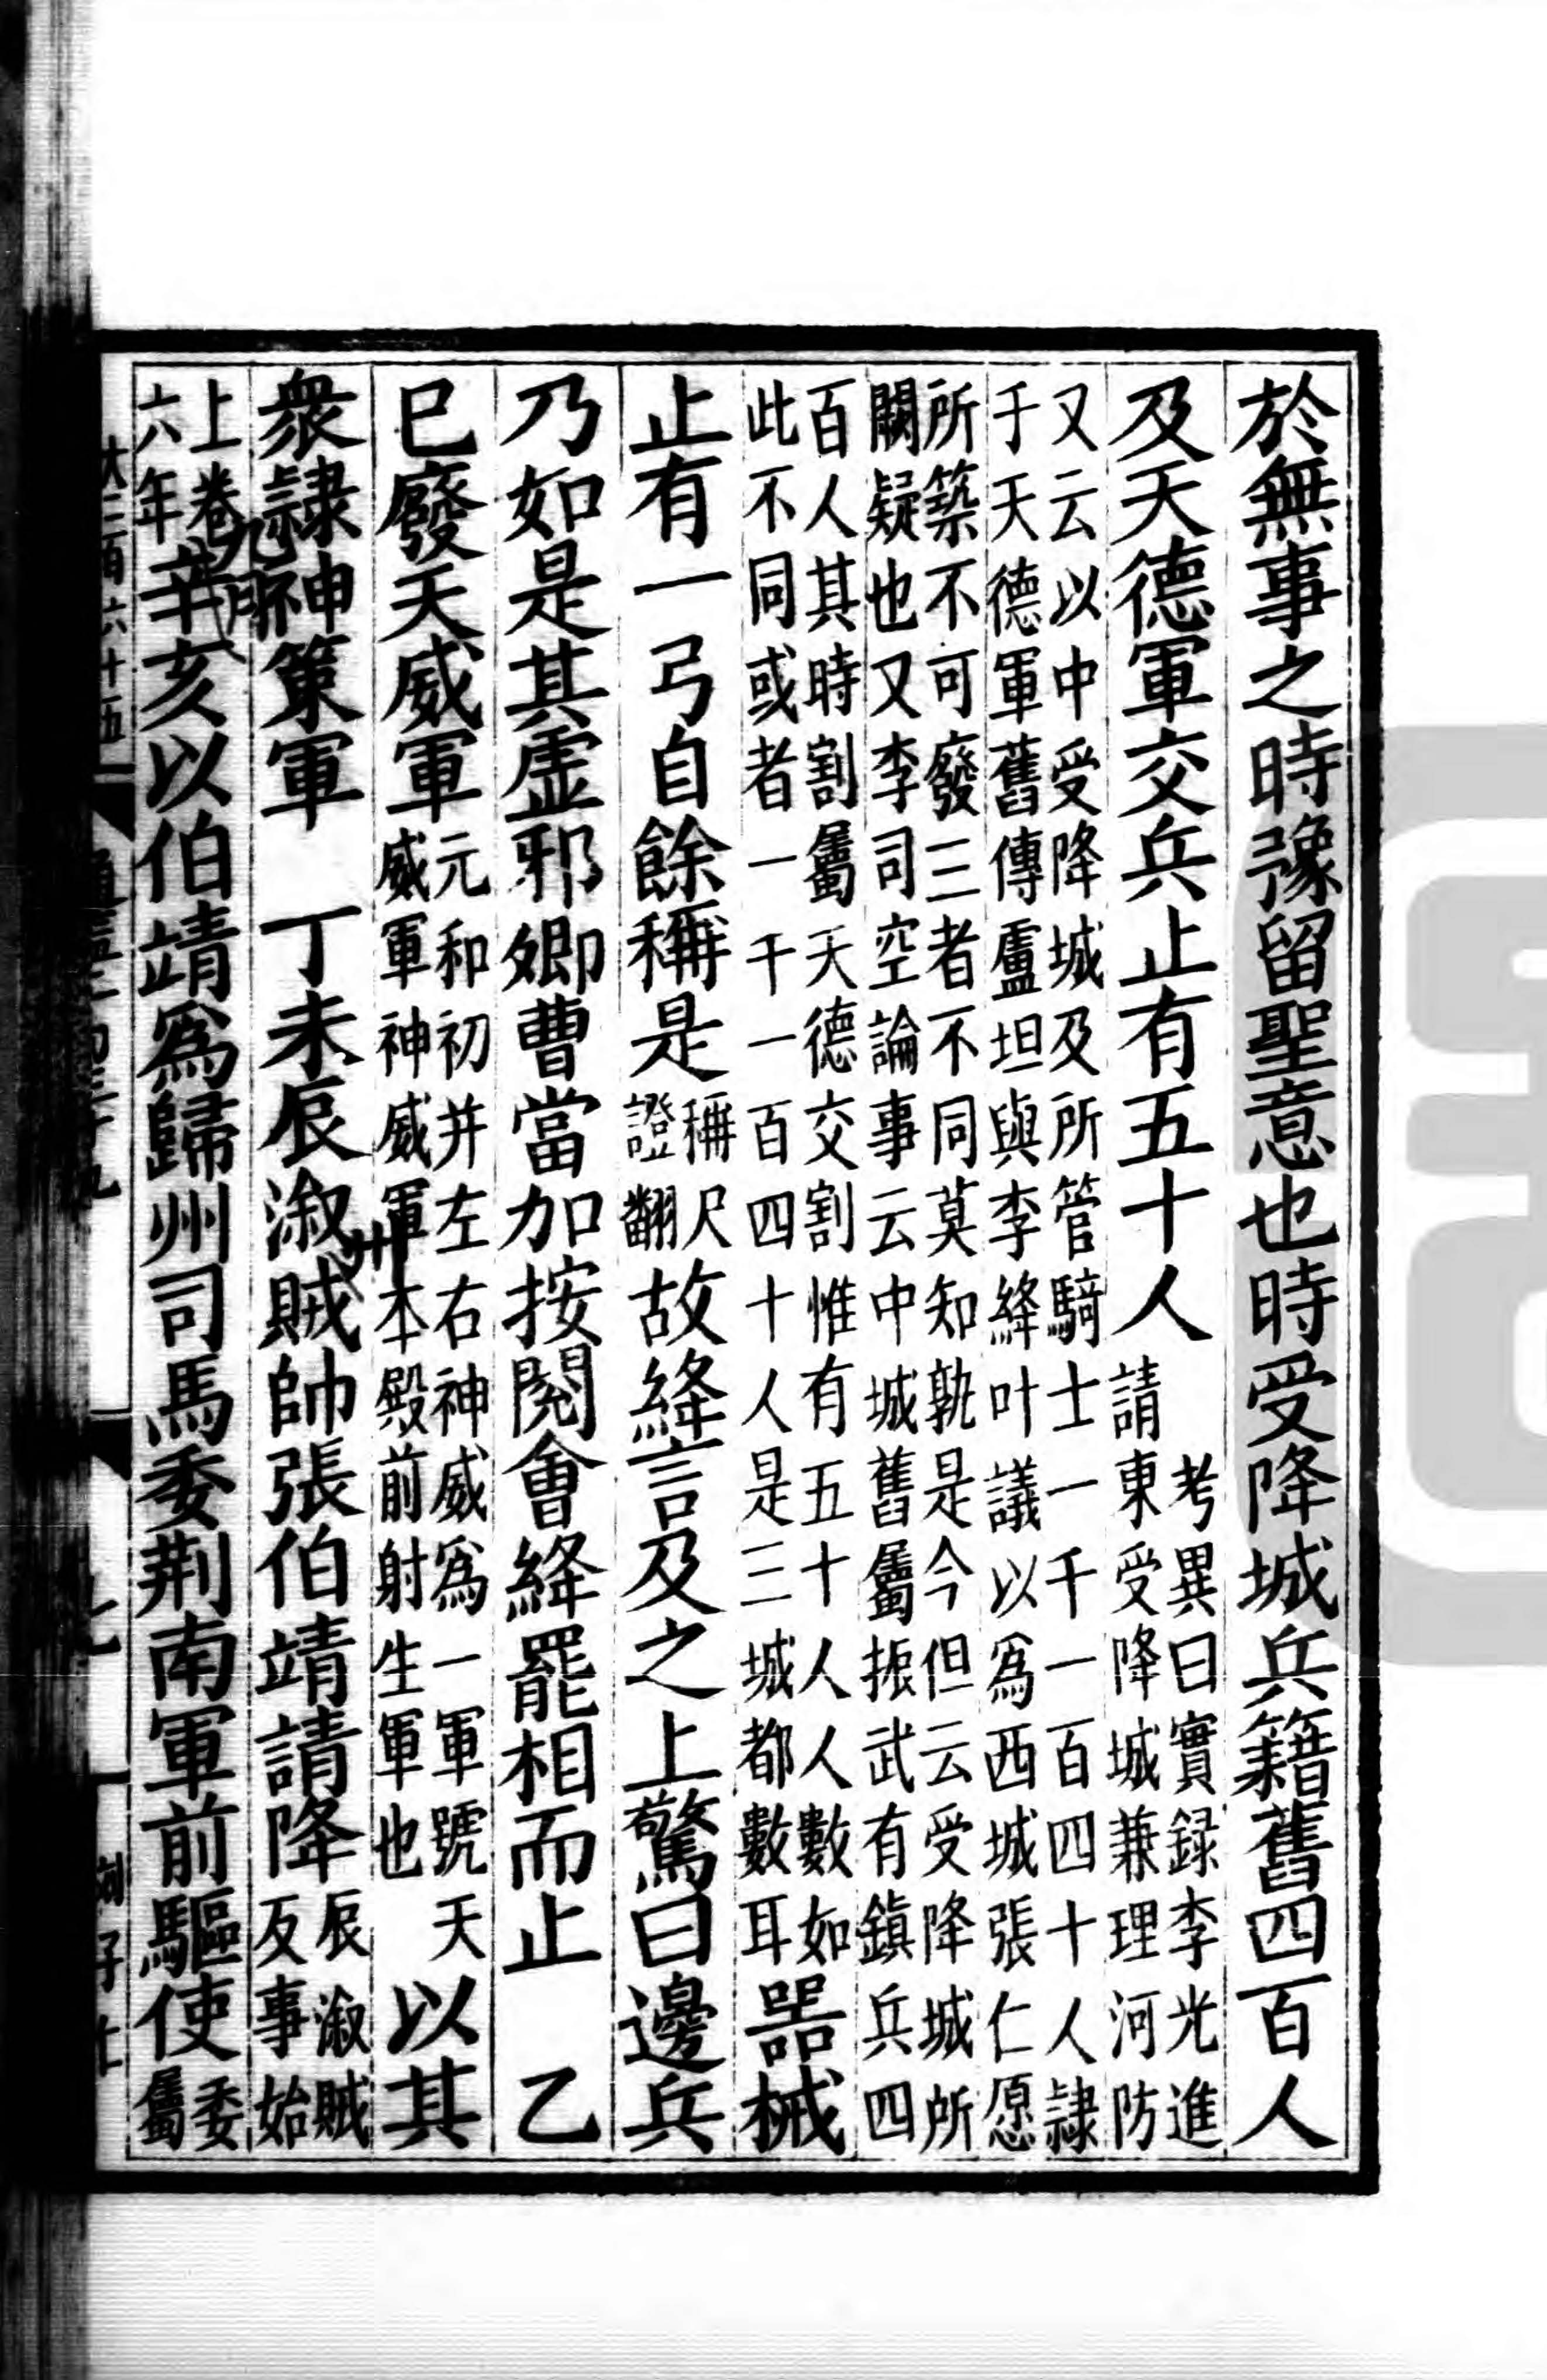 於無事之時豫留聖意也時受降城兵籍舊四百人
及天德軍交兵止有五十人請
考異曰實録李光進
東受降城兼理河防
又云以中受降城及所管騎士一千一百四十人隷
于天德軍舊傳盧坦與李絳叶議以爲西城張仁愿
所築不可廢三者不同莫知孰是今但云受降城所
闕疑也又李司空論事云中城舊屬振武有鎮兵四
百人其時割屬天德交割惟有五十人人數如
此不同或者一千一百四十人是三城都數耳
器械
止有一弓自餘稱是
稱尺
證翻
故絳言及之上驚曰邊兵
乃如是其虛邪卿曹當加按閱會絳罷相而止 乙
巳廢天威軍
元和初并左右神威爲一軍號天
威軍神威軍本殿前射生軍也
以其
衆隷神策軍 丁未辰溆賊帥張伯靖請降
辰溆賊
反事始
上卷
六年
辛亥以伯靖爲歸州司馬委荆南軍前驅使
委
屬